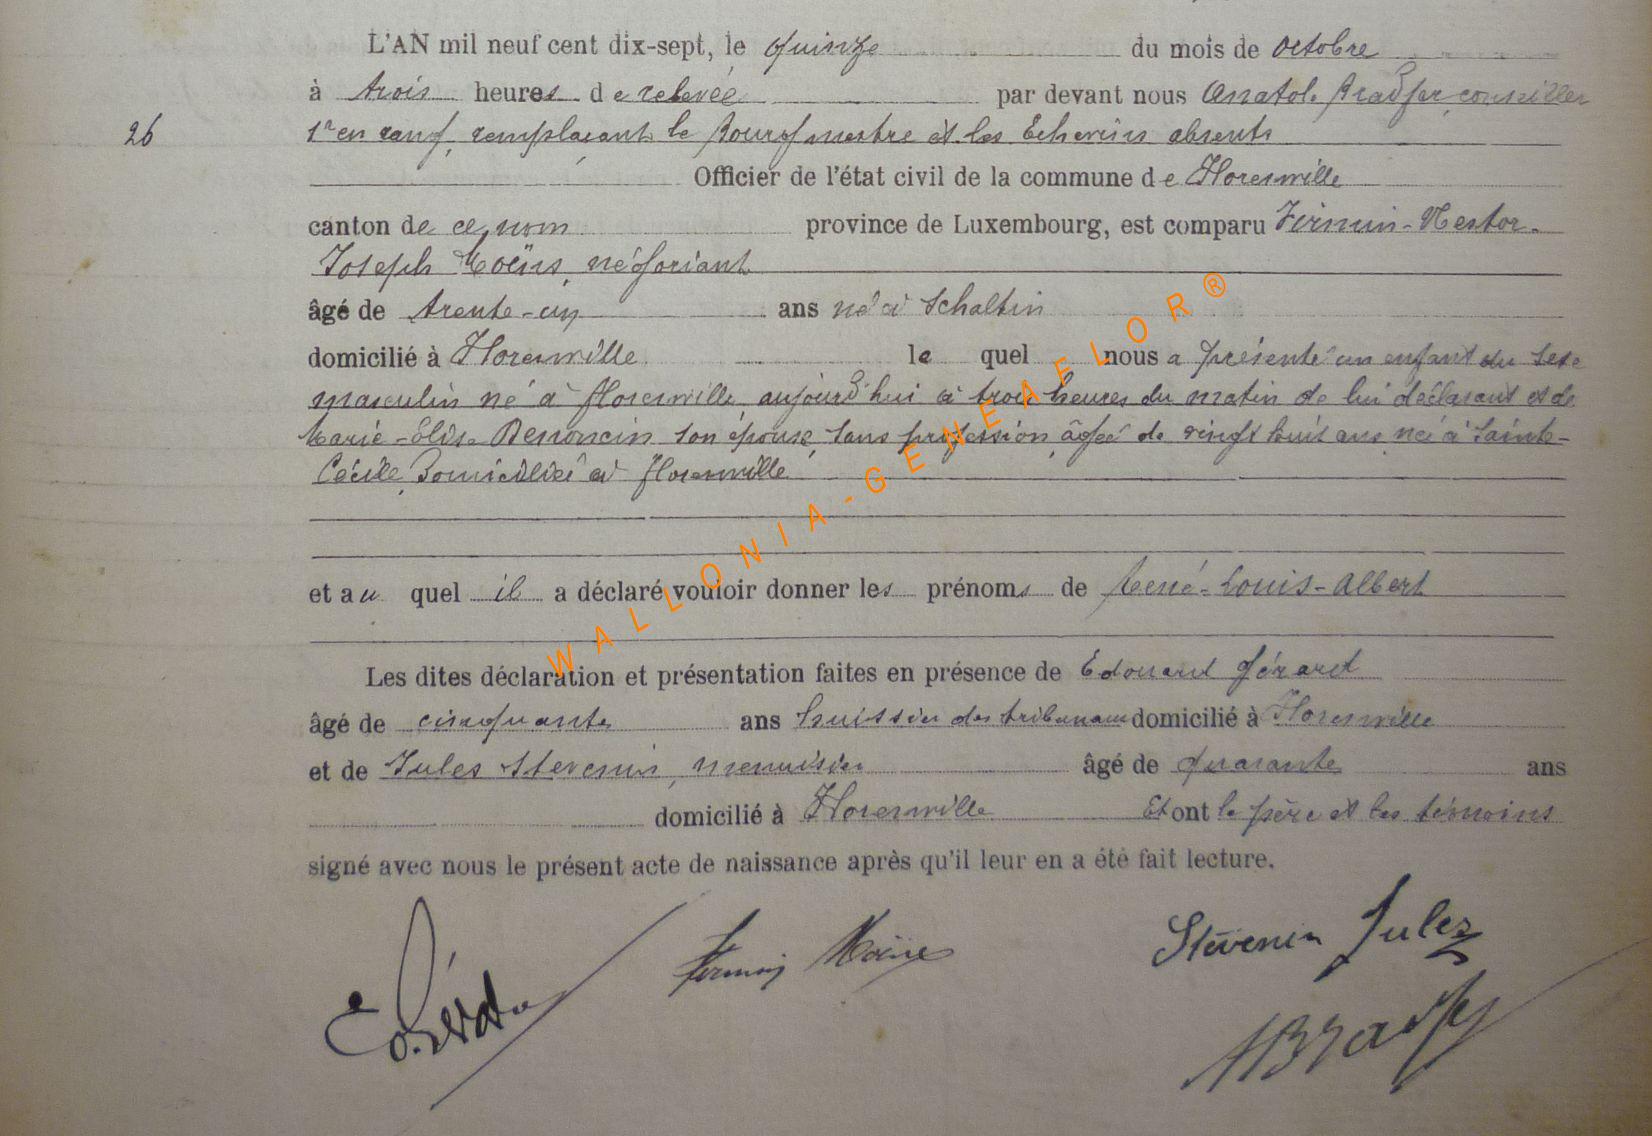 L'AN mil neuf cent dix-sept, le quinze du mois de octobre
à trois heures de relevée par devant nous Anatole conseiller
26
1er en rang, remplaçant le Bourgmestre et les Echevins absents
Officier de l'état civil de la commune de Florenville
canton de ce nom province de Luxembourg, est comparu Firmin-Nestor-
Joseph Moëns, négociant
âgé de trente-un ans né à Schaltin
domicilié à Florenville lequel nous a présenté un enfant du sexe
masculin né à Florenville, aujourd'hui à trois heures du matin de lui déclarant et de
Marie-Élise Denoncin son épouse, sans profession, âgée de vingt huit ans, née à Sainte-
Cécile, domiciliée à Florenville
et au quel il a déclaré vouloir donner les prénoms de René-Louis-Albert
Les dites déclaration et présentation faites en présence de Edouard Gérard
âgé de cinquante ans huissier des tribunaux domicilié à Florenville
et de Jules Stevenin, menuisier âgé de quarante ans
domicilié à Florenville Et ont le père et les témoins
signé avec nous le présent acte de naissance après qu'il leur en a été fait lecture.
Firmin Stévenin Jules
WALLONIA-GENEAFLOR®